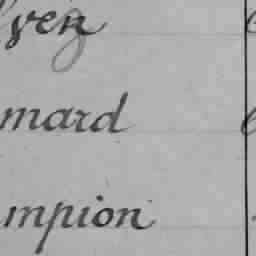 yen
mard
mpion